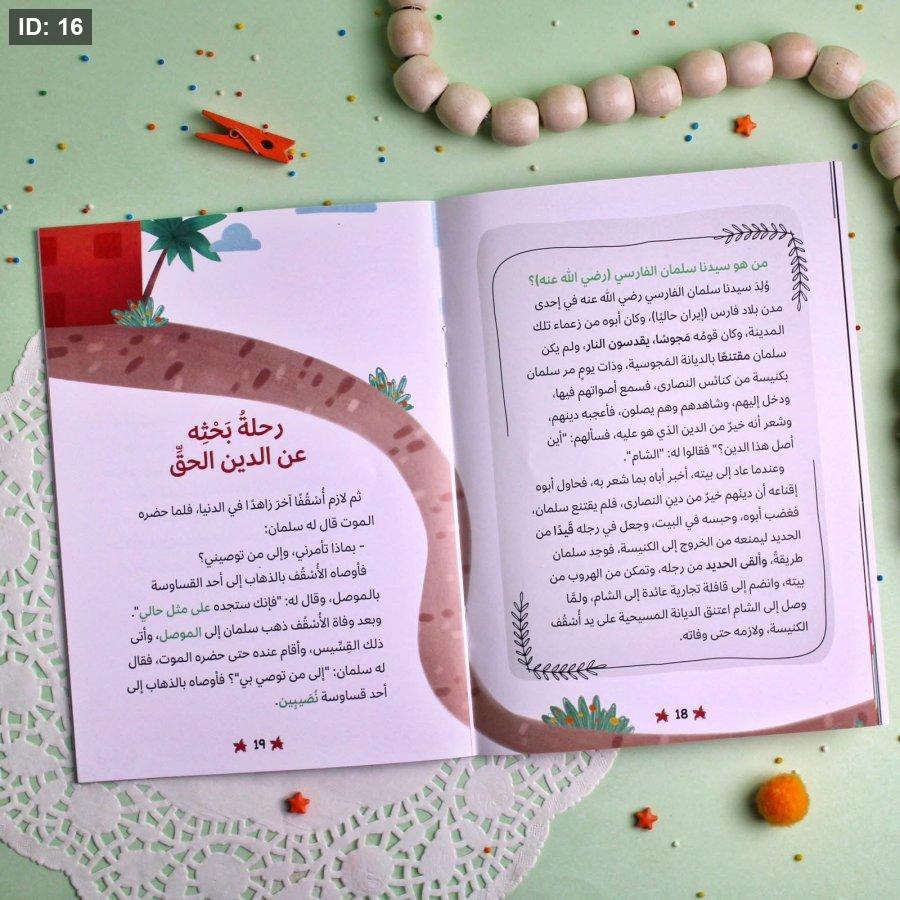 ID: 16
من هو سيدنا سلمان الفارسي (رضي الله عنه)؟
وُلِدَ سيدنا سلمان الفارسي رضي الله عنه في إحدى
مدن بلاد فارس (إيران حاليًا)، وكان أبوه من زعماء تلك
المدينة، وكان قومُه مَجوسًا، يقدسون النار، ولم يكن
سلمان مقتنعًا بالديانة المَجوسية، وذات يومٍ مر سلمان
بكنيسة من كنائس النصارى، فسمع أصواتهم فيها،
ودخل إليهم، وشاهدهم وهم يصلون، فأعجبه دينهم،
وشعر أنه خيرٌ من الدين الذي هو عليه، فسألهم: "أين
أصل هذا الدين؟" فقالوا له: "الشام".
وعندما عاد إلى بيته، أخبر أباه بما شعر به، فحاول أبوه
إقناعه أن دينهم خيرٌ من دينِ النصارى، فلم يقتنع سلمان،
فغضب أبوه، وحبسه في البيت، وجعل في رجله قَيدًا من
الحديد ليمنعه من الخروج إلى الكنيسة، فوجد سلمان
طريقةً، وألقى الحديد من رجله، وتمكن من الهروب من
بيته، وانضم إلى قافلة تجارية عائدة إلى الشام، ولمَّا
وصل إلى الشام اعتنق الديانة المسيحية على يد أُسْقُف
الكنيسة، ولازمه حتى وفاته.
18
رحلةُ بَحْثِه
عن الدين الحقِّ
ثم لازم أُسْقُفًا آخرَ زاهدًا في الدنيا، فلما حضره
الموت قال له سلمان:
- بماذا تأمرني، وإلى من توصيني؟
فأوصاه الأُسْقُف بالذهاب إلى أحد القساوسة
بالموصل، وقال له: "فإنك ستجده على مثل حالي".
وبعد وفاة الأُسْقُف ذهب سلمان إلى الموصل، وأتى
ذلك القِسِّيس، وأقام عنده حتى حضره الموت، فقال
له سلمان: "إلى من توصي بي"؟ فأوصاه بالذهاب إلى
أحد قساوسة نُصَيبِين.
19